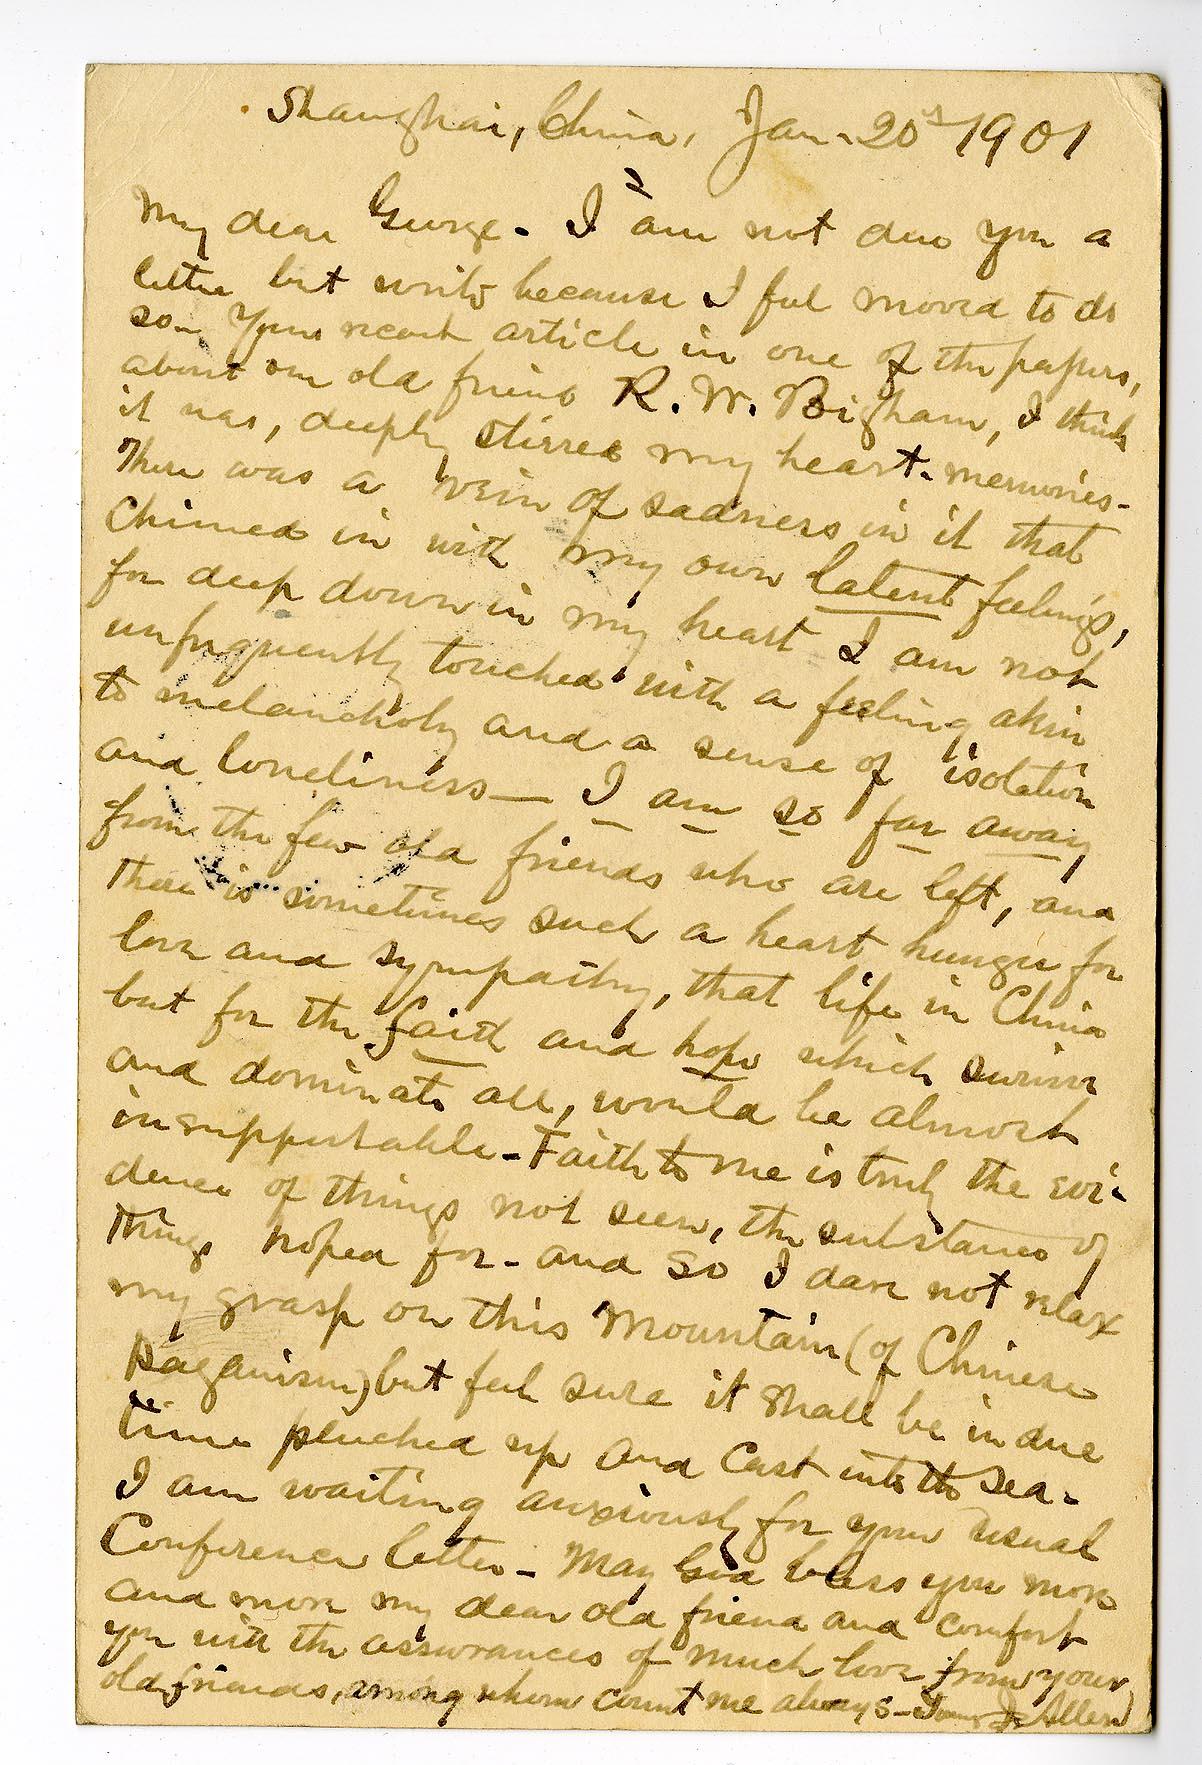 Shanghai, China, Jan. 20th 1901
My dear George. I am not due you a
letter but write because I feel moved to do
so. Your recent article in one of the papers,
about our old friend R. W. Bigham, I think
it was, deeply stirred my heart-memories-
There was a vein of sadness in it that
Chimed in with my own latent feelings,
for deep down in my heart I am not
unfrequently touched with a feeling akin
to melancholy and a sense of isolation
and loneliness - I am so far away
from the few old friends who are left, and
there is sometimes such a heart hunger for
love and sympathy, that life in China
but for the faith and hope which survive
and dominate all, would be almost
insupportable - Faith to me is truly the evi-
dence of things not seen, the substance of
things hoped for - and so I dare not relax
my grasp on this Mountain (of Chinese
paganism) but feel sure it shall be in due
time plucked up and cast into the Sea.
I am waiting anxiously for your usual
Conference letter - May God bless you more
and more my dear old friend and comfort
you with the assurances of much love from your
old friends, among whom count me always - J. Allen